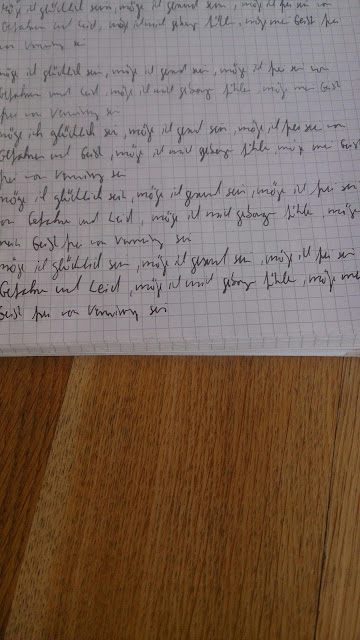 möge ich glücklich sein, möge ich gesund sein, möge ich frei sein von
Gefahren und Leid, möge ich mich geborgen fühlen, möge mein Geist frei
von Verwirrung sein
möge ich glücklich sein, möge ich gesund sein, möge ich frei sein von
Gefahren und Leid, möge ich mich geborgen fühlen, möge mein Geist
frei von Verwirrung sein
möge ich glücklich sein, möge ich gesund sein, möge ich frei sein von
Gefahren und Geist, möge ich mich geborgen fühlen möge mein Geist
frei von Verwirrung sein
möge ich glücklich sein, möge ich gesund sein, möge ich frei sein
von Gefahren und Leid, möge ich mich geborgen fühlen, möge
mein Geist frei von Verwirrung sein
möge ich glücklich sein, möge ich gesund sein, möge ich frei sein
Gefahren und Leid, möge ich mich geborgen fühlen, möge mein
Geist frei von Verwirrung sein